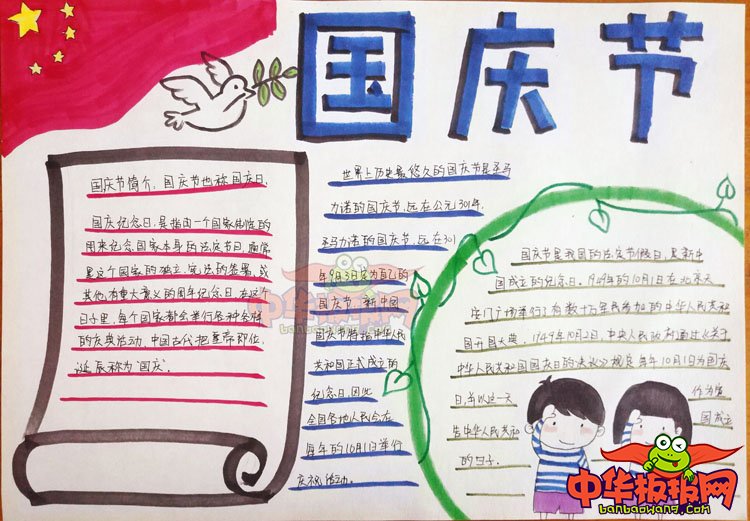 国庆节
国庆节简介，国庆节也称国庆日、
国庆纪念日，是指由一个国家制定的
用来纪念国家本身的法定节日，通常
是这个国家的独立、宪法的签署、或
其他有重大意义的周年纪念日，在这个
日子里，每个国家都会举行各种各样
的庆典活动，中国古代把皇帝即位、
诞辰称为"国庆"。
世界上历史最悠久的国庆节是圣马
力诺的国庆节，远在公元301年，
圣马力诺的国庆节，远在301
年9月3日定为自己的
国庆节，新中国
国庆节特指中华人民
共和国正式成立的
纪念日，因此
全国各地人民会在
每年的10月1日举行
庆祝活动。
国庆节是我国的法定节假日，是新中
国成立的纪念日。1949年的10月1日在北京天
安门广场举行了有数十万军民参加的中华人民共和
国开国大典。1949年10月2日，中央人民政府通过《关于
中华人民共和国国庆日的决议》规定每年10月1日为国庆
日，并以这一天 作为宣
告中华人民共和 国成立
的日子。
中华板报网
banbaowang.com
中华板报网
banbaowang.com